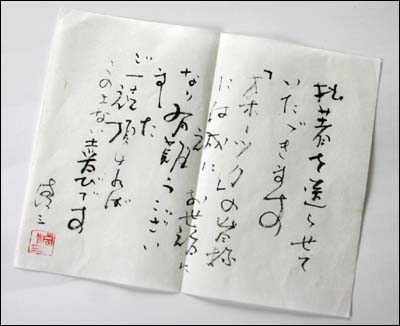 拙著を送らせて
いたゞきます
「オホーツクの
には誠に
お世話に
なり有難うござい
ました
ご一読頂ければ
この上ない喜びです
三